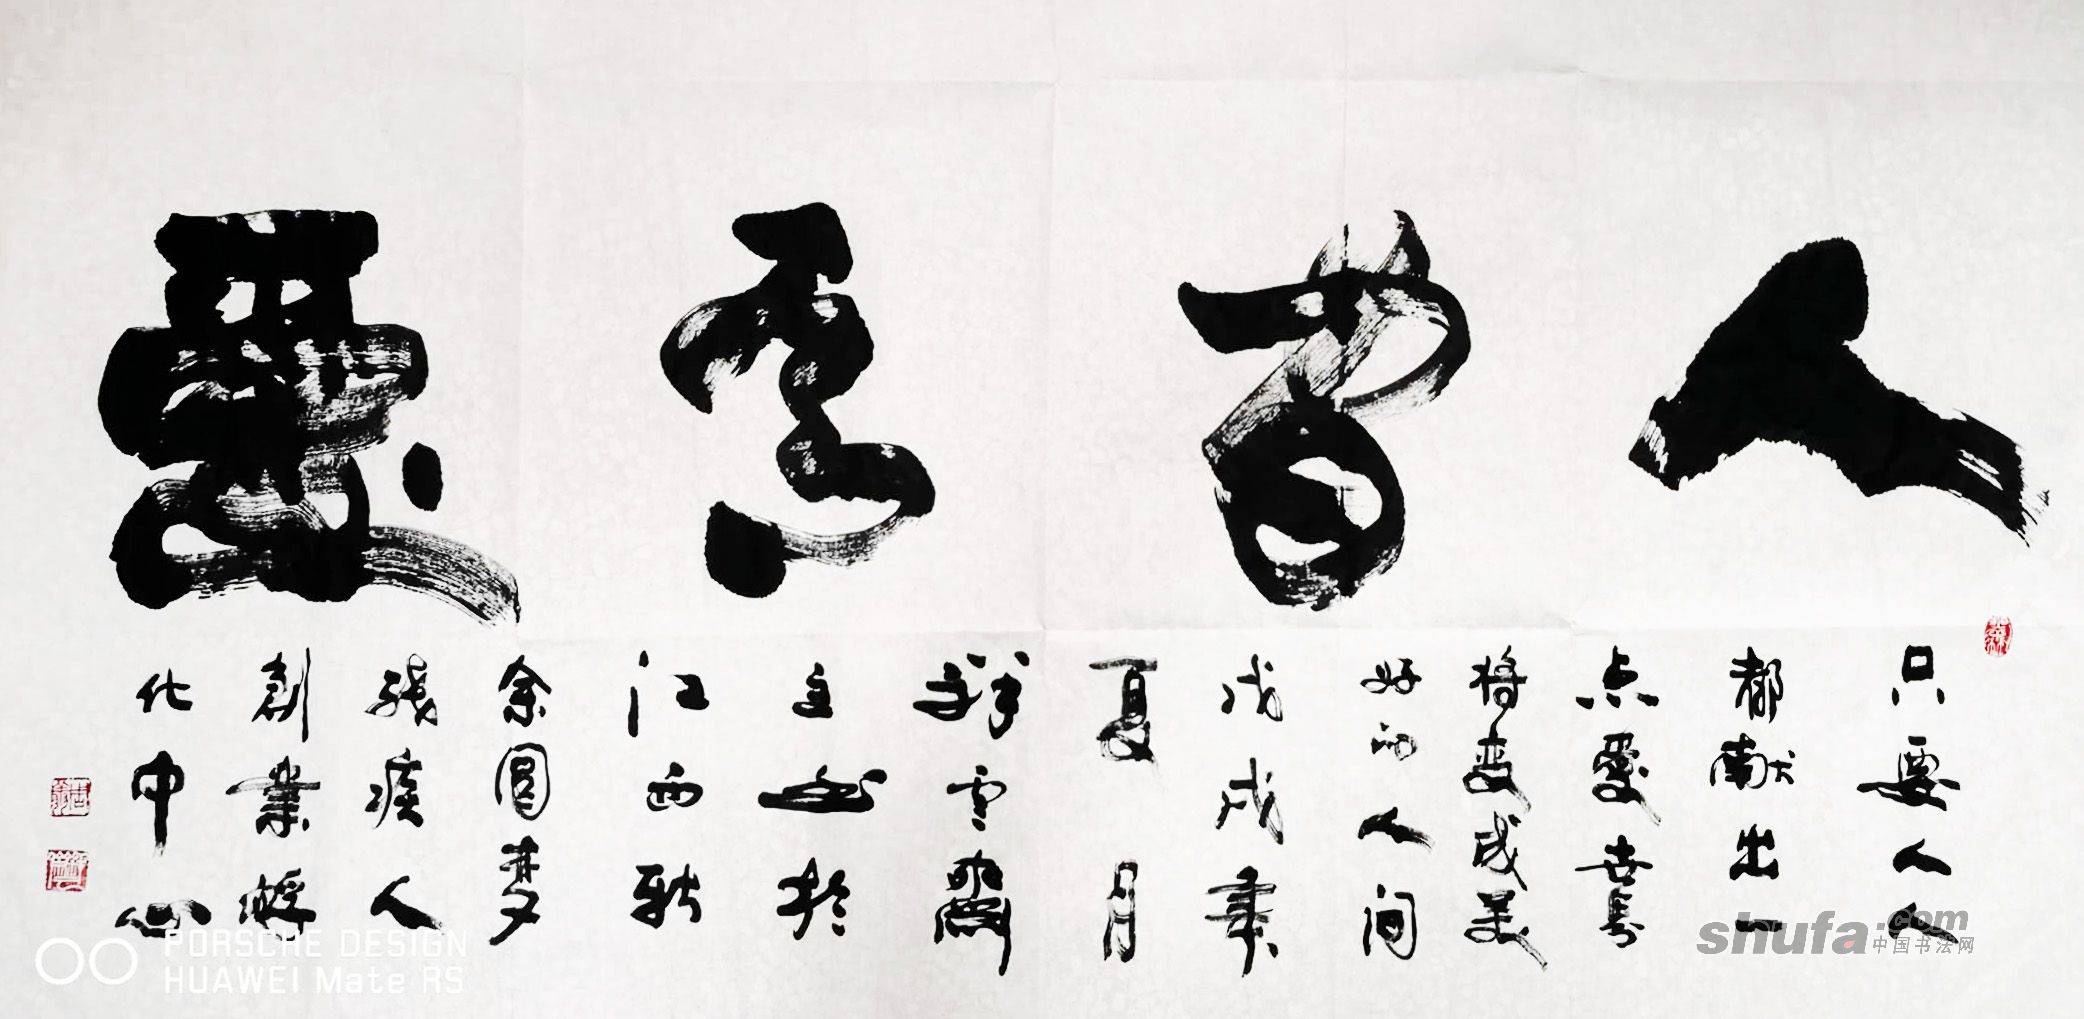 人
愛
只要人人
都献出一
点愛世界
将变成美
好的人间
戊戌年
夏月
祥雲齋
主书於
江西新
余圓梦
残疾人
創業孵
化中心
shufa.com
中国书法网
PORSCHE DESIGN
HUAWEI Mate RS